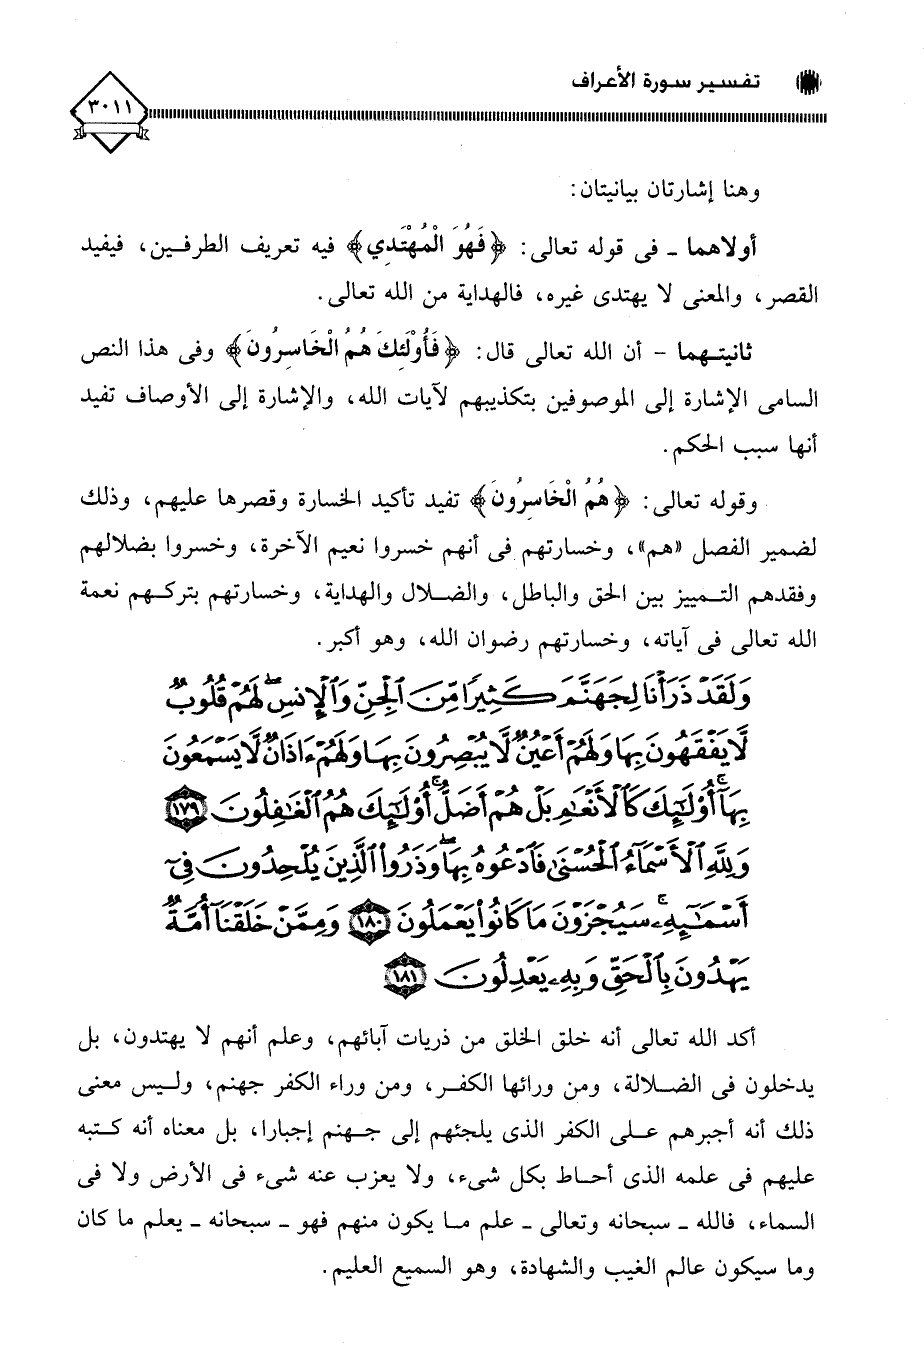 تفسير سورة الأعراف
٣٠١١
وهنا إشارتان بيانيتان:
أولاهما ـ فى قوله تعالى: ﴿فَهُوَ الْمُهْتَدِي﴾ فيه تعريف الطرفين، فيفيد
القصر، والمعنى لا يهتدى غيره، فالهداية من الله تعالى.
ثانيتهما - أن الله تعالى قال: ﴿فَأُوْلَئِكَ هُمُ الْخَاسِرُونَ﴾ وفى هذا النص
السامى الإشارة إلى الموصوفين بتكذيبهم لآيات الله، والإشارة إلى الأوصاف تفيد
أنها سبب الحكم.
وقوله تعالى: ﴿هُمُ الْخَاسِرُونَ﴾ تفيد تأكيد الخسارة وقصرها عليهم، وذلك
لضمير الفصل «هم»، وخسارتهم فى أنهم خسروا نعيم الآخرة، وخسروا بضلالهم
وفقدهم التمييز بين الحق والباطل، والضلال والهداية، وخسارتهم بتركهم نعمة
الله تعالى فى آياته، وخسارتهم رضوان الله، وهو أكبر.
وَلَقَدْ ذَرَأْنَا لِجَهَنَّمَ كَثِيرًا مِّنَ ٱلْجِنِّ وَٱلْإِنسِ ۖ لَهُمْ قُلُوبٌ
لَّا يَفْقَهُونَ بِهَا وَلَهُمْ أَعْيُنٌ لَّا يُبْصِرُونَ بِهَا وَلَهُمْ ءَاذَانٌ لَّا يَسْمَعُونَ
بِهَآ ۚ أُوْلَٰٓئِكَ كَٱلْأَنْعَٰمِ بَلْ هُمْ أَضَلُّ ۚ أُوْلَٰٓئِكَ هُمُ ٱلْغَٰفِلُونَ ١٧٩
وَلِلَّهِ ٱلْأَسْمَآءُ ٱلْحُسْنَىٰ فَٱدْعُوهُ بِهَا ۖ وَذَرُوا۟ ٱلَّذِينَ يُلْحِدُونَ فِىٓ
أَسْمَٰٓئِهِۦ ۚ سَيُجْزَوْنَ مَا كَانُوا۟ يَعْمَلُونَ ١٨٠ وَمِمَّنْ خَلَقْنَآ أُمَّةٌ
يَهْدُونَ بِٱلْحَقِّ وَبِهِۦ يَعْدِلُونَ ١٨١
أكد الله تعالى أنه خلق الخلق من ذريات آبائهم، وعلم أنهم لا يهتدون، بل
يدخلون فى الضلالة، ومن ورائها الكفر، ومن وراء الكفر جهنم، وليس معنى
ذلك أنه أجبرهم على الكفر الذى يلجئهم إلى جهنم إجبارا، بل معناه أنه كتبه
عليهم فى علمه الذى أحاط بكل شىء، ولا يعزب عنه شىء فى الأرض ولا فى
السماء، فالله ـ سبحانه وتعالى ـ علم ما يكون منهم فهو ـ سبحانه ـ يعلم ما كان
وما سيكون عالم الغيب والشهادة، وهو السميع العليم.